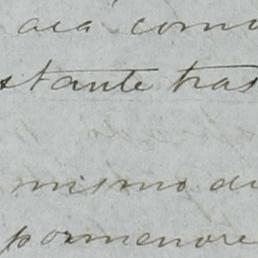 acá como
stante tras
mismo di
pormenore